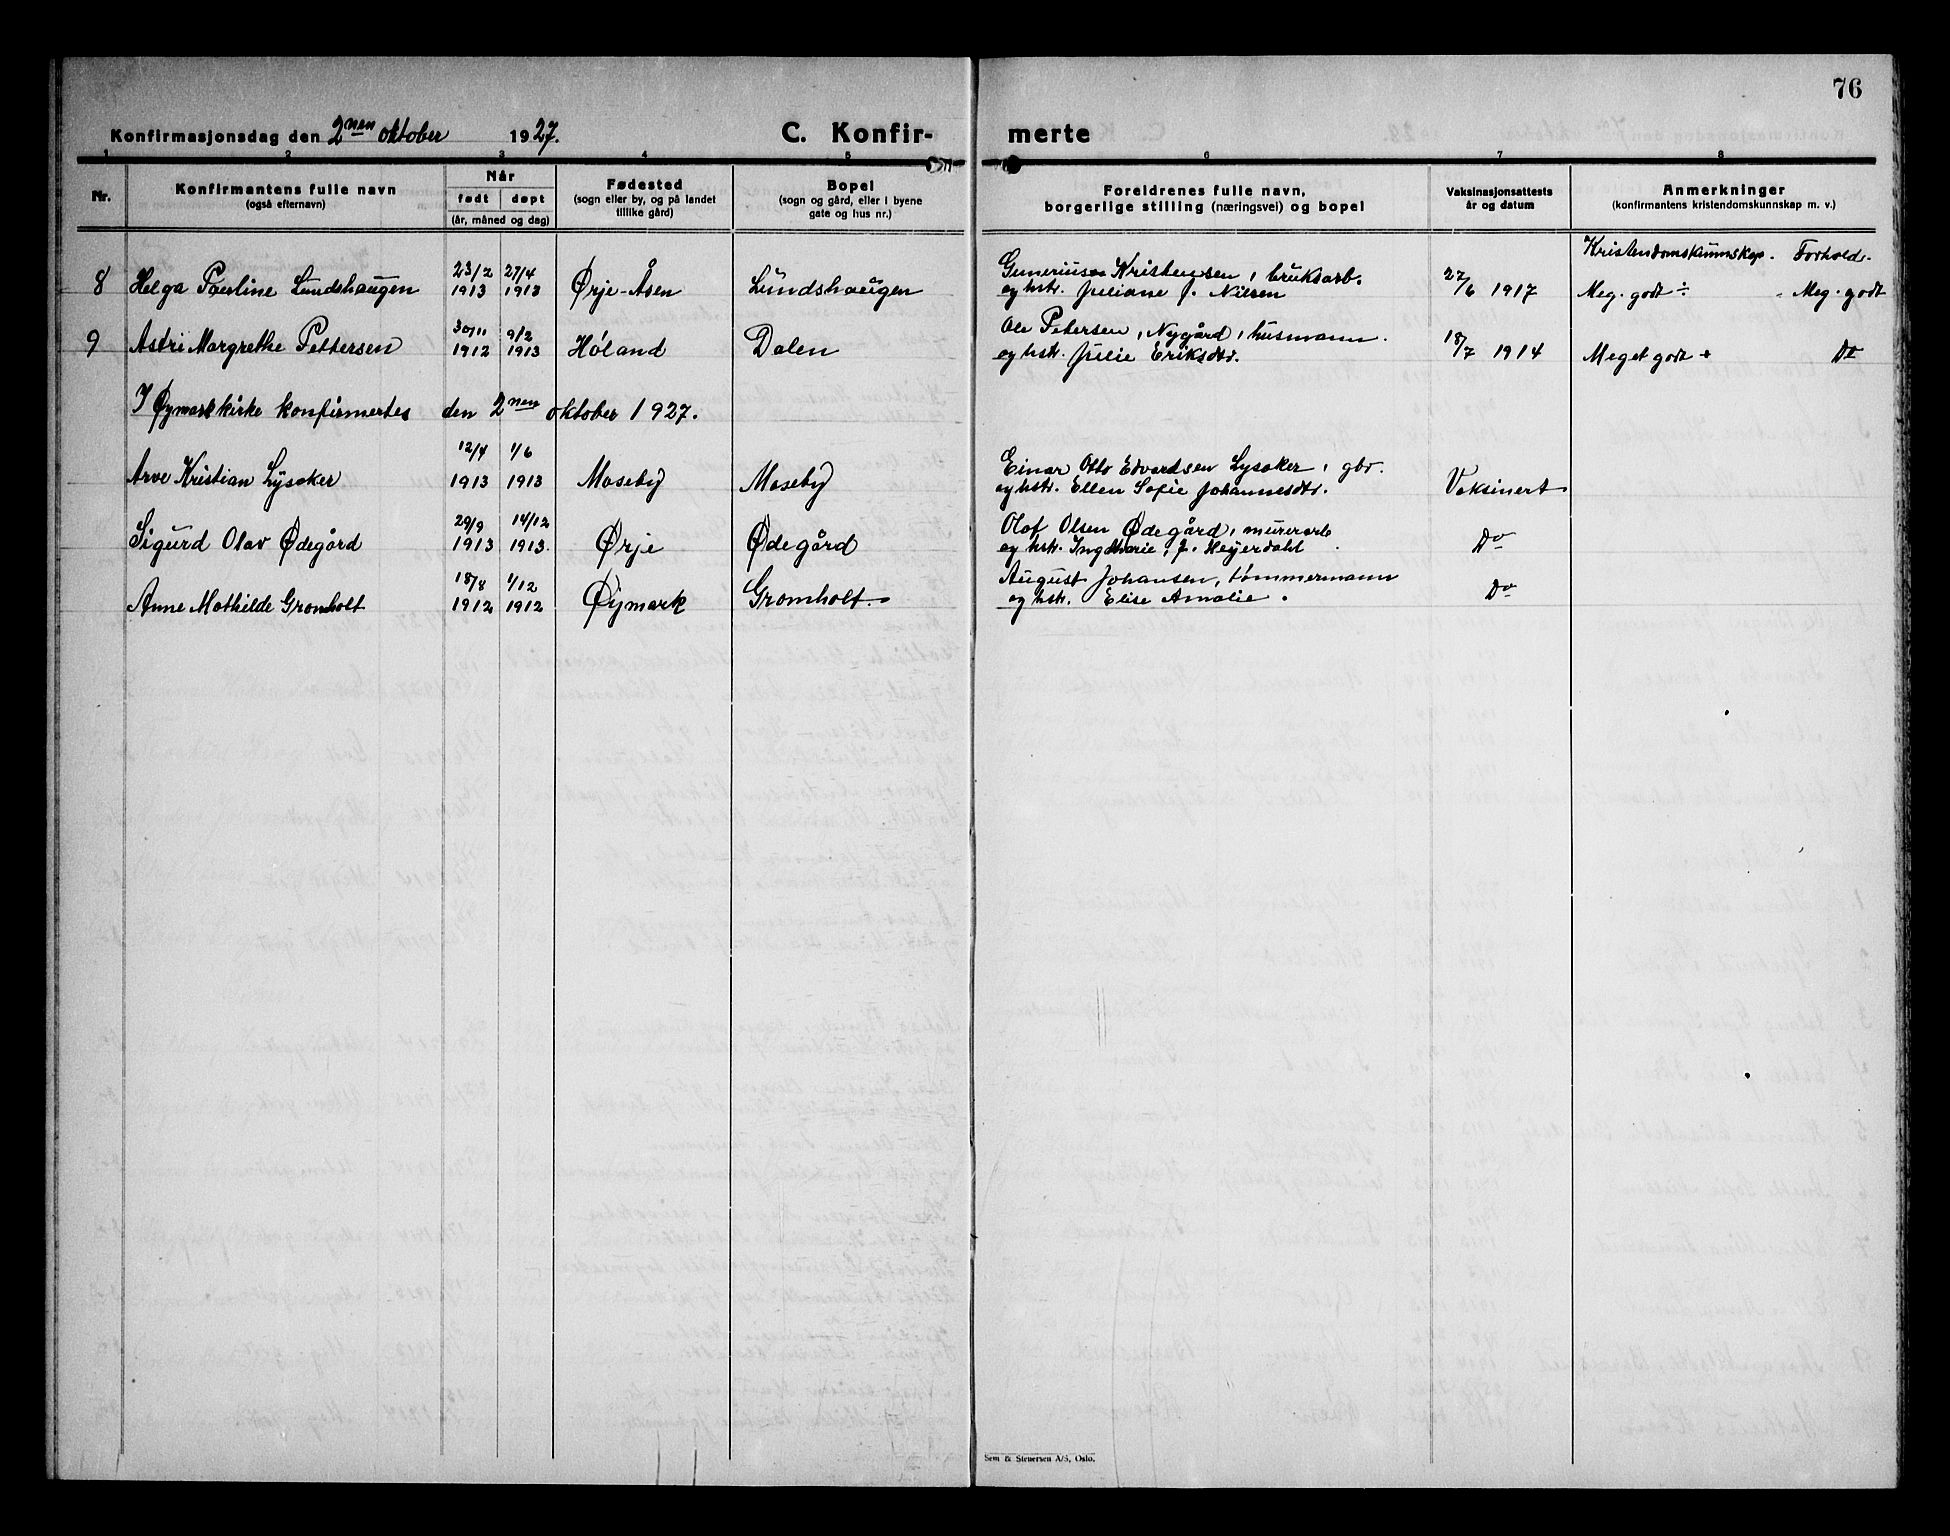 76
Konfirmasjonsdag den 2nen oktober 1927. C. Konfir- merte
1 2 3 4 5 6 7 8
Nr. Konfirmantens fulle navn (også efternavn) Når født døpt (år, måned og dag) Fødested (sogn eller by, og på landet tillike gård) Bopel (sogn og gård, eller i byene gate og hus nr.) Foreldrenes fulle navn, borgerlige stilling (næringsvei) og bopel Vaksinasjonsattests år og datum Anmerkninger (konfirmantens kristendomskunnskap m. v.)
Kristendomskunnskap. Forhold.
8 Helga Pauline Lundshaugen 23/2 1913 27/4 1913 Ørje-Åsen Lundshaugen Gunerius Kristensen, bruksarb. 27/6 1917 Meg. godt ÷ Meg. godt
og hstr. Juliane f. Nilsen
9 Astri Margrethe Pettersen 30/11 1912 9/2 1913 Høland Dalen Ole Petersen, Nygård, husmann. 18/7 1914 Meget godt + Do
og hstr. Julie Eriksdtr.
I Øymark kirke konfirmertes den 2nen oktober 1927.
Arve Kristian Lysaker 12/4 1913 1/6 1913 Moseby Moseby Einar Otto Edvardsen Lysaker, gbr. Vaksinert
og hstr. Ellen Sofie Johannesdtr.
Sigurd Olav Ødegård 29/9 1913 14/12 1913. Ørje Ødegård Olof Olsen Ødegård, murerarb Do
og hstr. Ing. Marie, f. Heyerdahl
Anne Mathilde Gromholt 18/8 1912 1/12 1912 Øymark Gromholt. August Johansen, tømmermann Do
og hstr. Elise Amalie.
Sem & Stenersen A/S, Oslo.